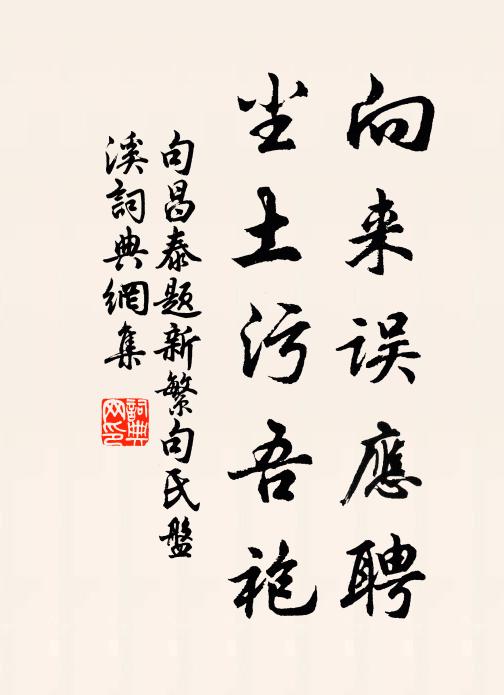 向来误應聘
尘土污吾袍
句昌泰题新繁句氏盤
溪詞典網集
詞典
网印